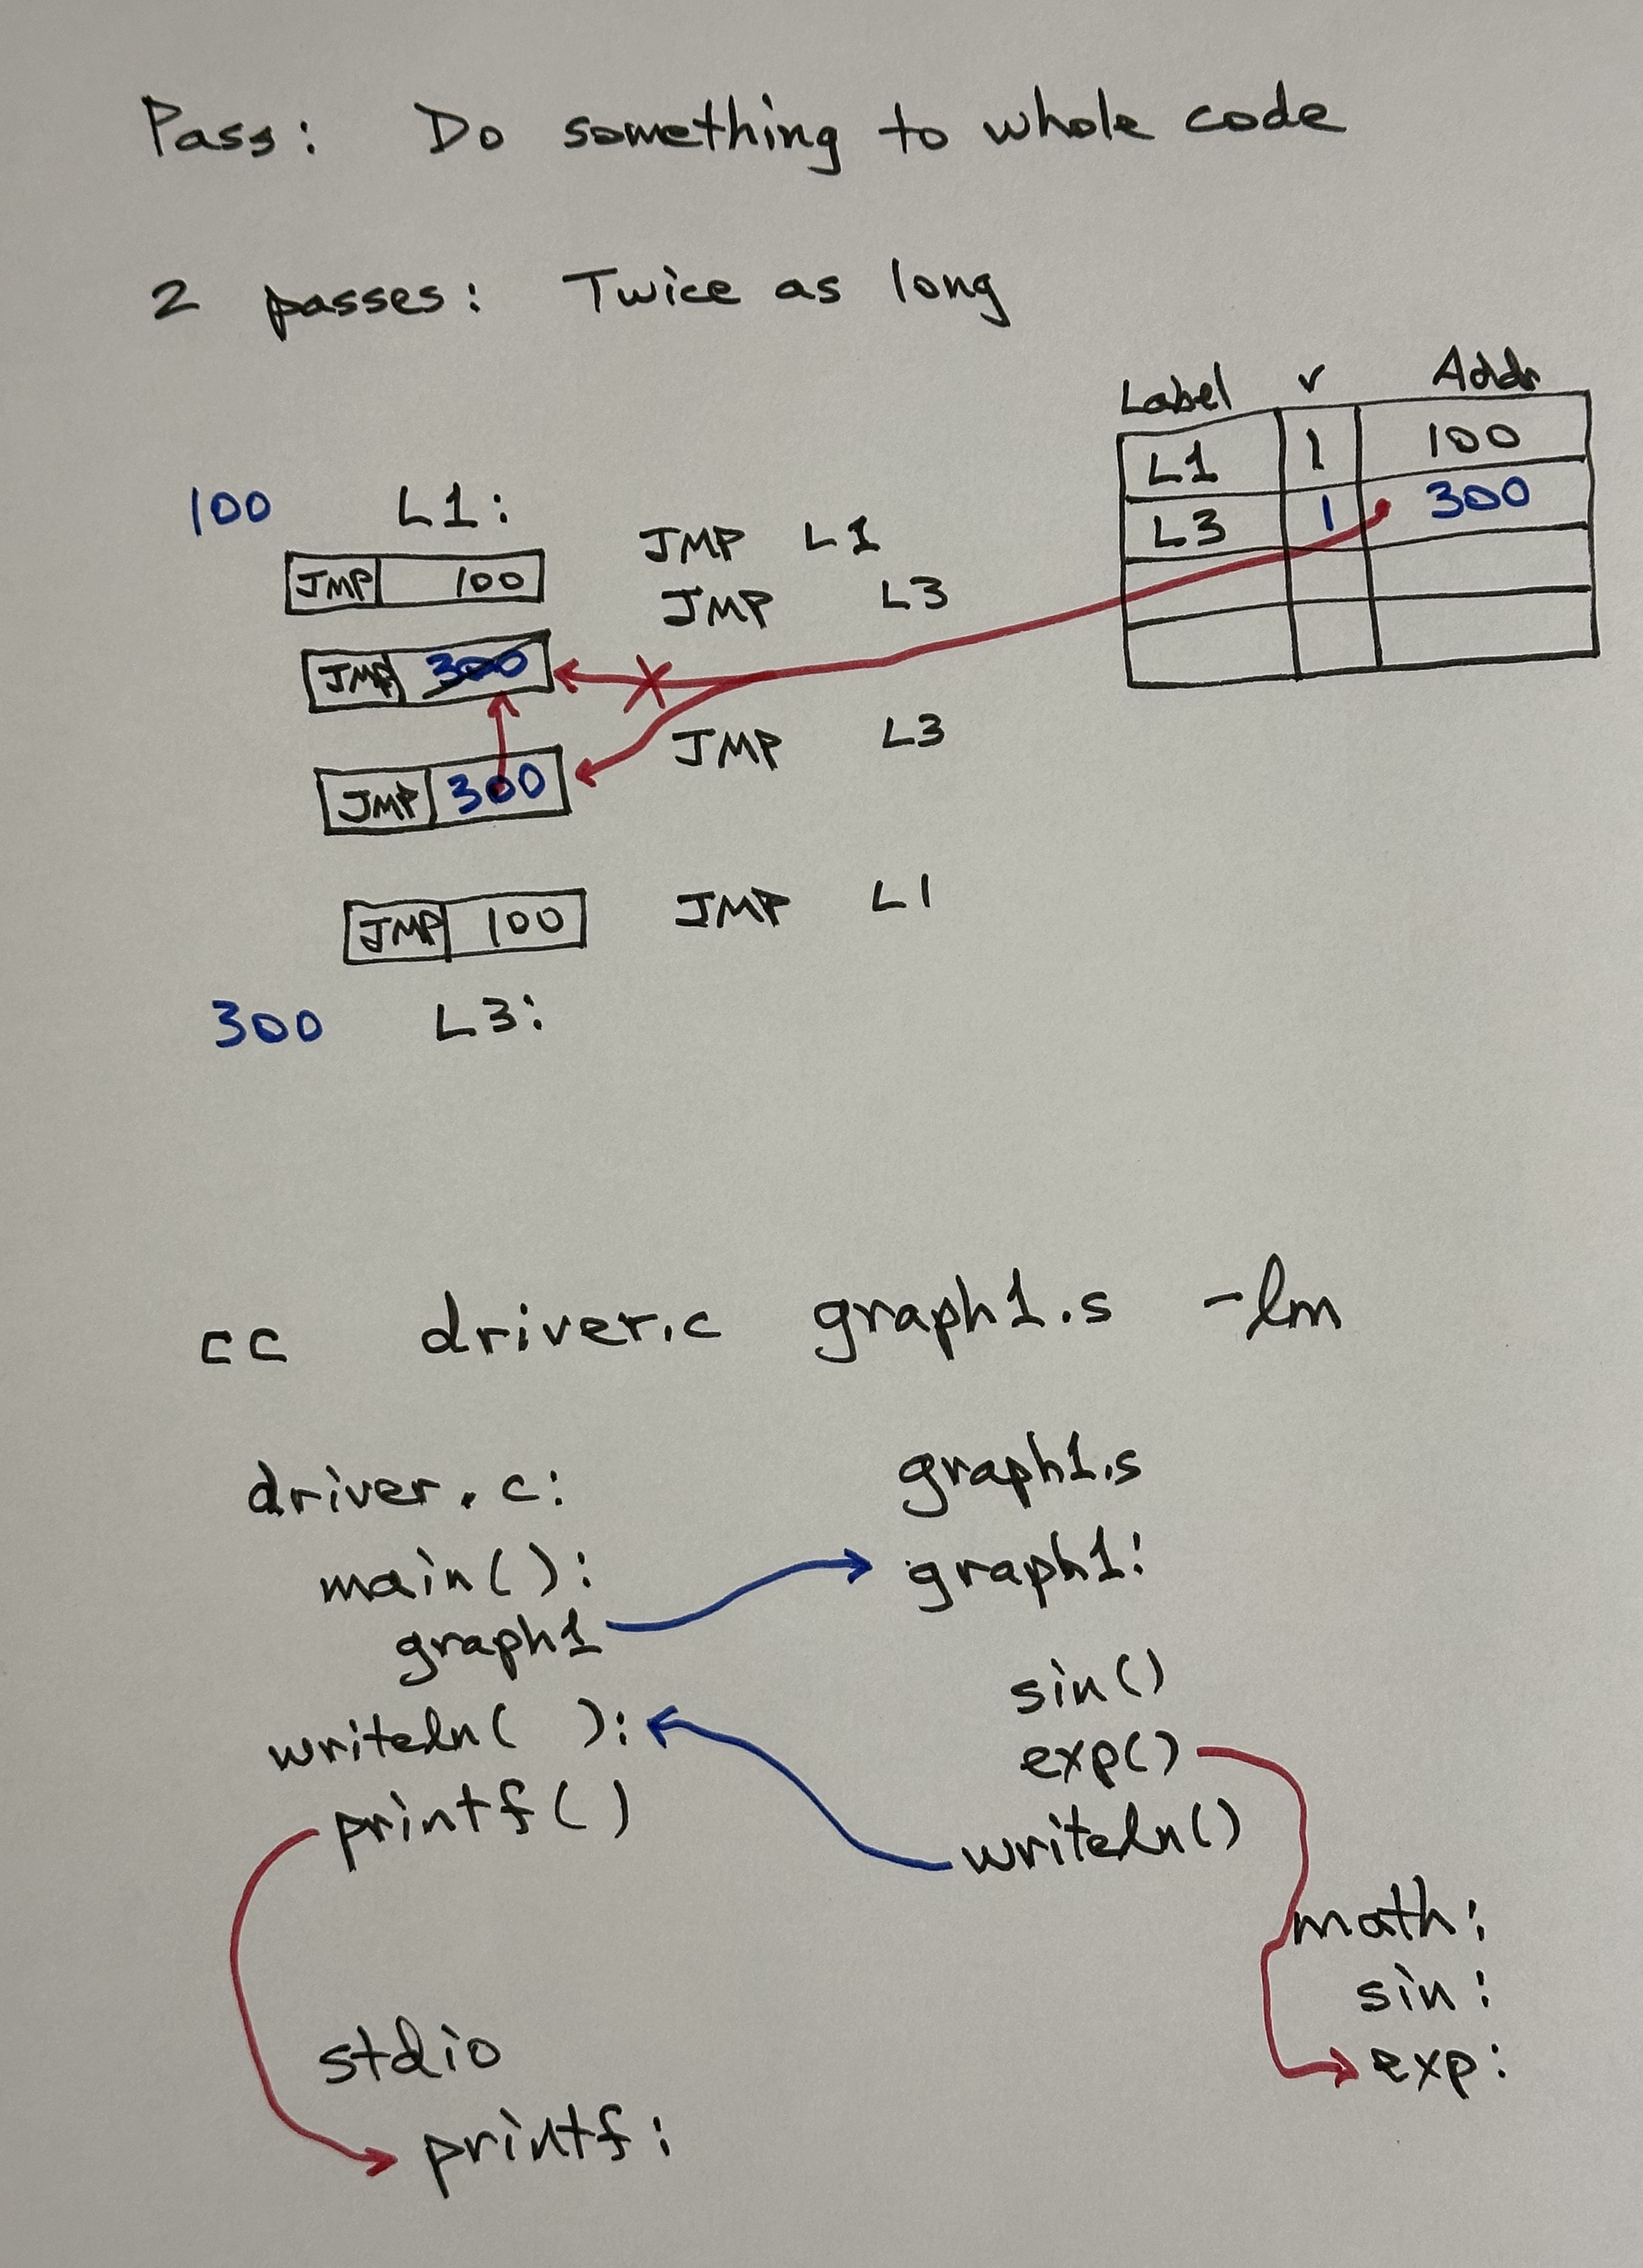 Pass: Do something to whole code
2 passes: Twice as long
Label v Addr
L1 1 100
L3 1 300
100 L1:
JMP 100 JMP L1
JMP L3
JMP 300
JMP L3
JMP 300
JMP 100 JMP L1
300 L3:
cc driver.c graph1.s -lm
driver.c: graph1.s
main(): graph1:
graph1
sin()
writeln( ): exp()
printf() writeln()
math:
sin:
stdio exp:
printf: